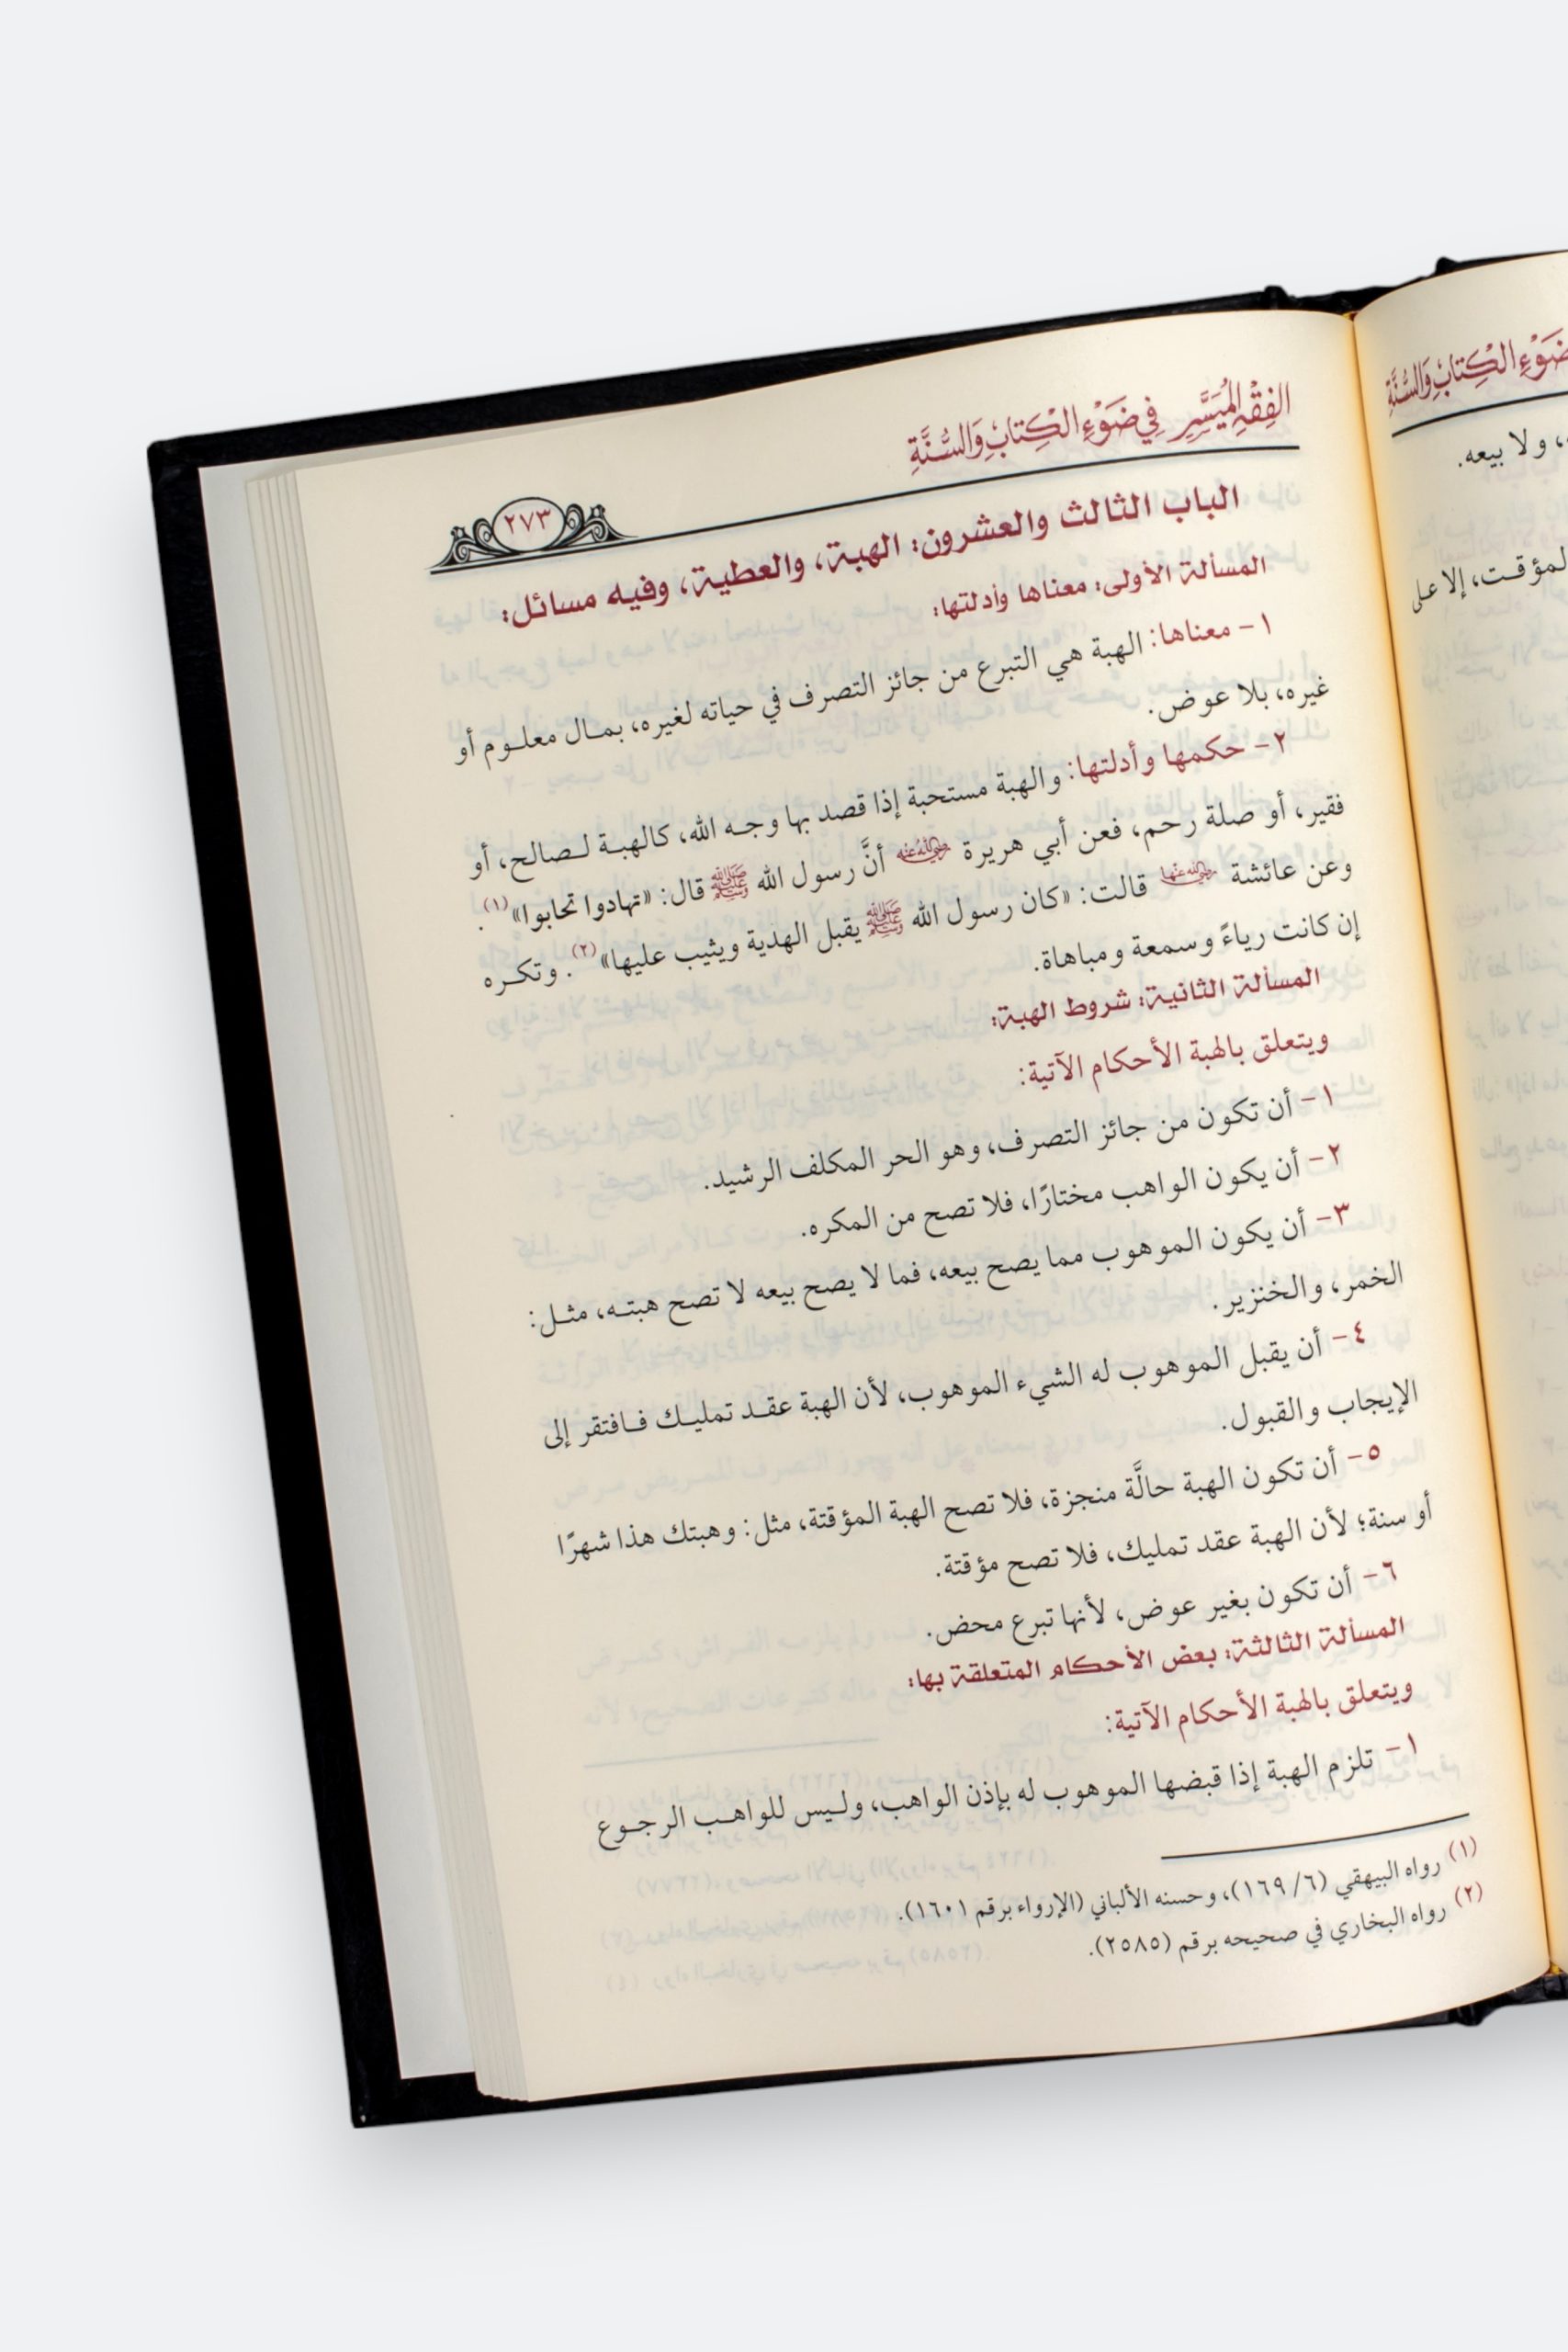 الفِقْهِ المُيَسَّرِ فِي ضَوْءِ الْكِتَابِ وَالسُّنَّةِ
٢٧٣
الباب الثالث والعشرون: الهبة، والعطية، وفيه مسائل:
المسألة الأولى: معناها وأدلتها:
١- معناها: الهبة هي التبرع من جائز التصرف في حياته لغيره، بمال معلوم أو
غيره، بلا عوض.
٢- حكمها وأدلتها: والهبة مستحبة إذا قصد بها وجه الله، كالهبة لصالح، أو
فقير، أو صلة رحم، فعن أبي هريرة رضي الله عنه أنَّ رسول الله ﷺ قال: «تهادوا تحابوا»(١).
وعن عائشة رضي الله عنها قالت: «كان رسول الله ﷺ يقبل الهدية ويثيب عليها»(٢). وتكره
إن كانت رياءً وسمعة ومباهاة.
المسألة الثانية: شروط الهبة:
ويتعلق بالهبة الأحكام الآتية:
١- أن تكون من جائز التصرف، وهو الحر المكلف الرشيد.
٢- أن يكون الواهب مختارًا، فلا تصح من المكره.
٣- أن يكون الموهوب مما يصح بيعه، فما لا يصح بيعه لا تصح هبته، مثل:
الخمر، والخنزير.
٤- أن يقبل الموهوب له الشيء الموهوب، لأن الهبة عقد تمليك فافتقر إلى
الإيجاب والقبول.
٥- أن تكون الهبة حالَّة منجزة، فلا تصح الهبة المؤقتة، مثل: وهبتك هذا شهرًا
أو سنة؛ لأن الهبة عقد تمليك، فلا تصح مؤقتة.
٦- أن تكون بغير عوض، لأنها تبرع محض.
المسألة الثالثة: بعض الأحكام المتعلقة بها:
ويتعلق بالهبة الأحكام الآتية:
١- تلزم الهبة إذا قبضها الموهوب له بإذن الواهب، وليس للواهب الرجوع
(١) رواه البيهقي (٦/ ١٦٩)، وحسنه الألباني (الإرواء برقم ١٦٠١).
(٢) رواه البخاري في صحيحه برقم (٢٥٨٥).
ضَوْءِ الْكِتَابِ وَالسُّنَّةِ
، ولا بيعه.
لمؤقت، إلا على